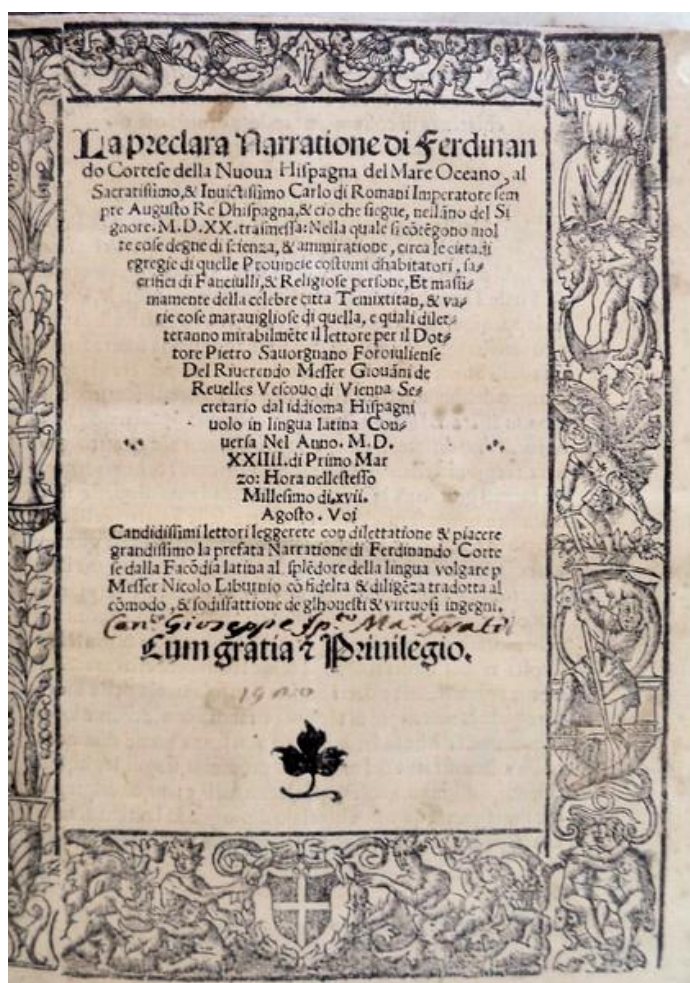 La preclara Narratione di Ferdinan
do Cortese della Nuoua Hispagna del Mare Oceano, al
Sacratissimo, & Inuictissimo Carlo di Romani Imperatore sem
pre Augusto Re Dhispagna, & cio che siegue, nell āno del Si
gnore. M.D.XX. trasmessa: Nella quale si cōtēgono mol
te cose degne di scienza, & ammiratione, circa le citta di
egregie di quelle Prouincie costumi dhabitatori, sa⸗
crifici di Fanciulli, & Religiose persone, Et massi
mamente della celebre citta Temixtitan, & va⸗
rie cose marauigliose di quella, e quali dilet⸗
teranno mirabilmēte il lettore per il Dot⸗
tore Pietro Sauorgnano Foroiuliense
Del Riuerendo Messer Giouāni de
Reuelles Vescouo di Vienna Se⸗
cretario dal iddioma Hispagni
uolo in lingua latina Con⸗
uersa Nel Anno. M.D.
XXIIII. di Primo Mar
zo: Hora nellestesso
Millesimo di. xvii.
Agosto. Voi
Candidissimi lettori leggerete con dilettatione & piacere
grandissimo la prefata Narratione di Ferdinando Corte
se dalla Facōdia latina al splēdore della lingua volgare p
Messer Nicolo Liburnio cō fidelta & diligēza tradotta al
cōmodo, & sodisfattione de glhonesti & virtuosi ingegni.
Giuseppe
Cum gratia ⁊ Priuilegio.